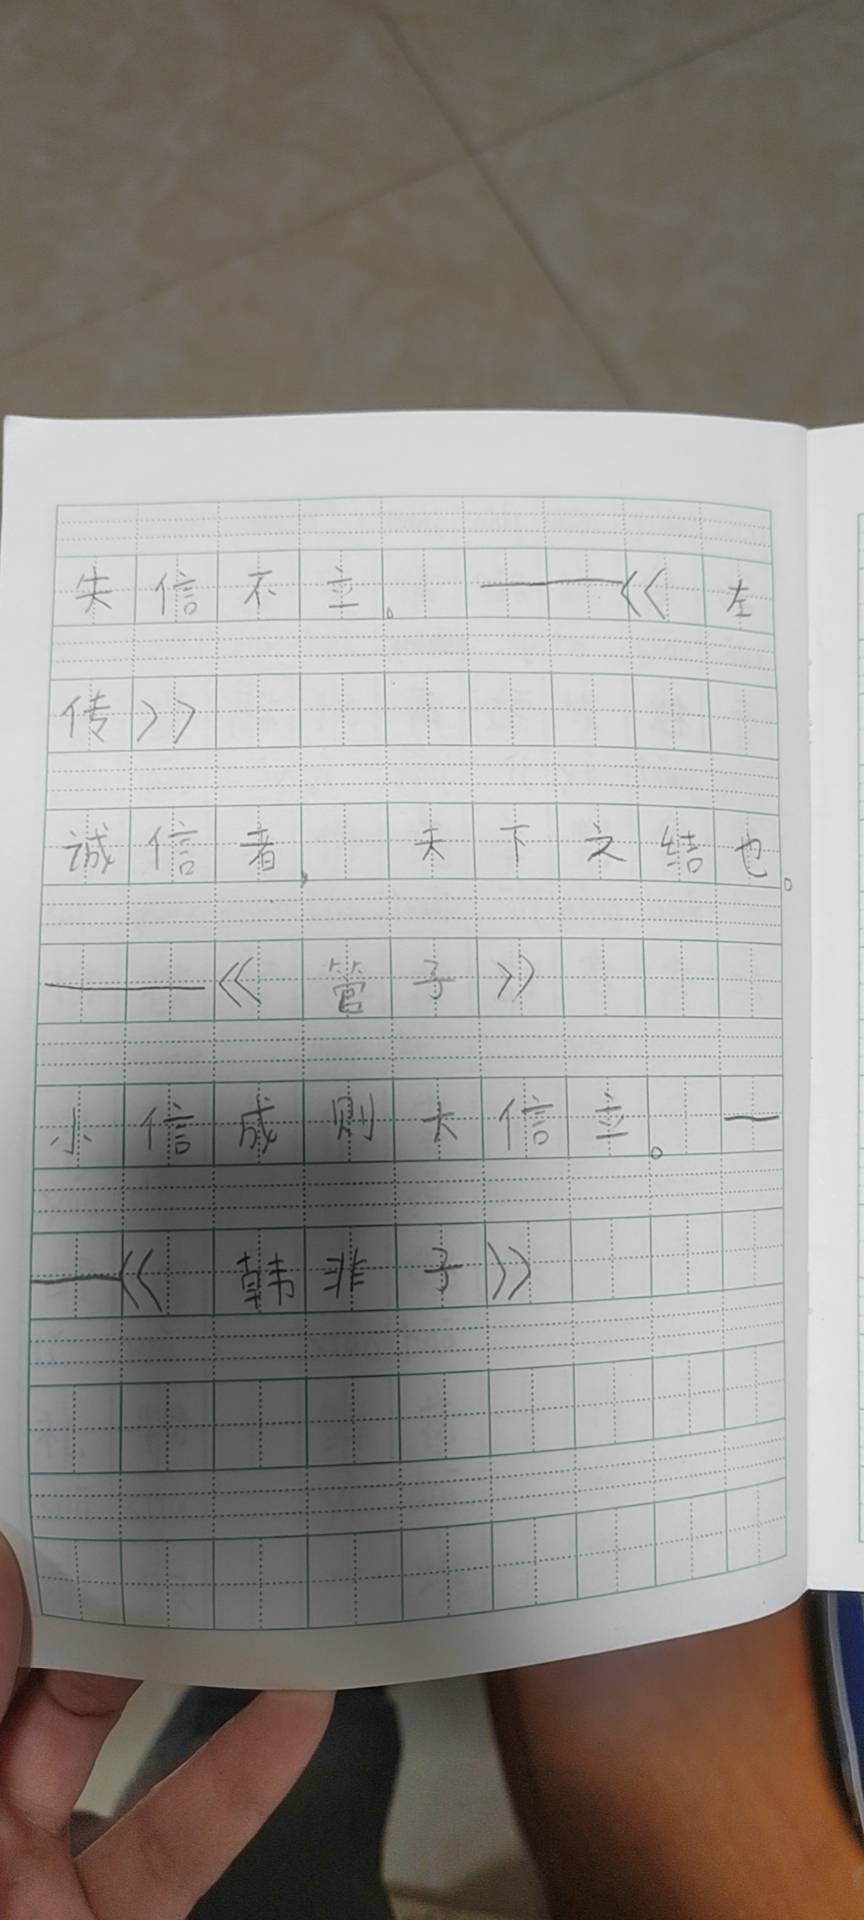 失信不立。——《左
传》
诚信者，天下之结也。
——《管子》
小信成则大信立。—
—《韩非子》